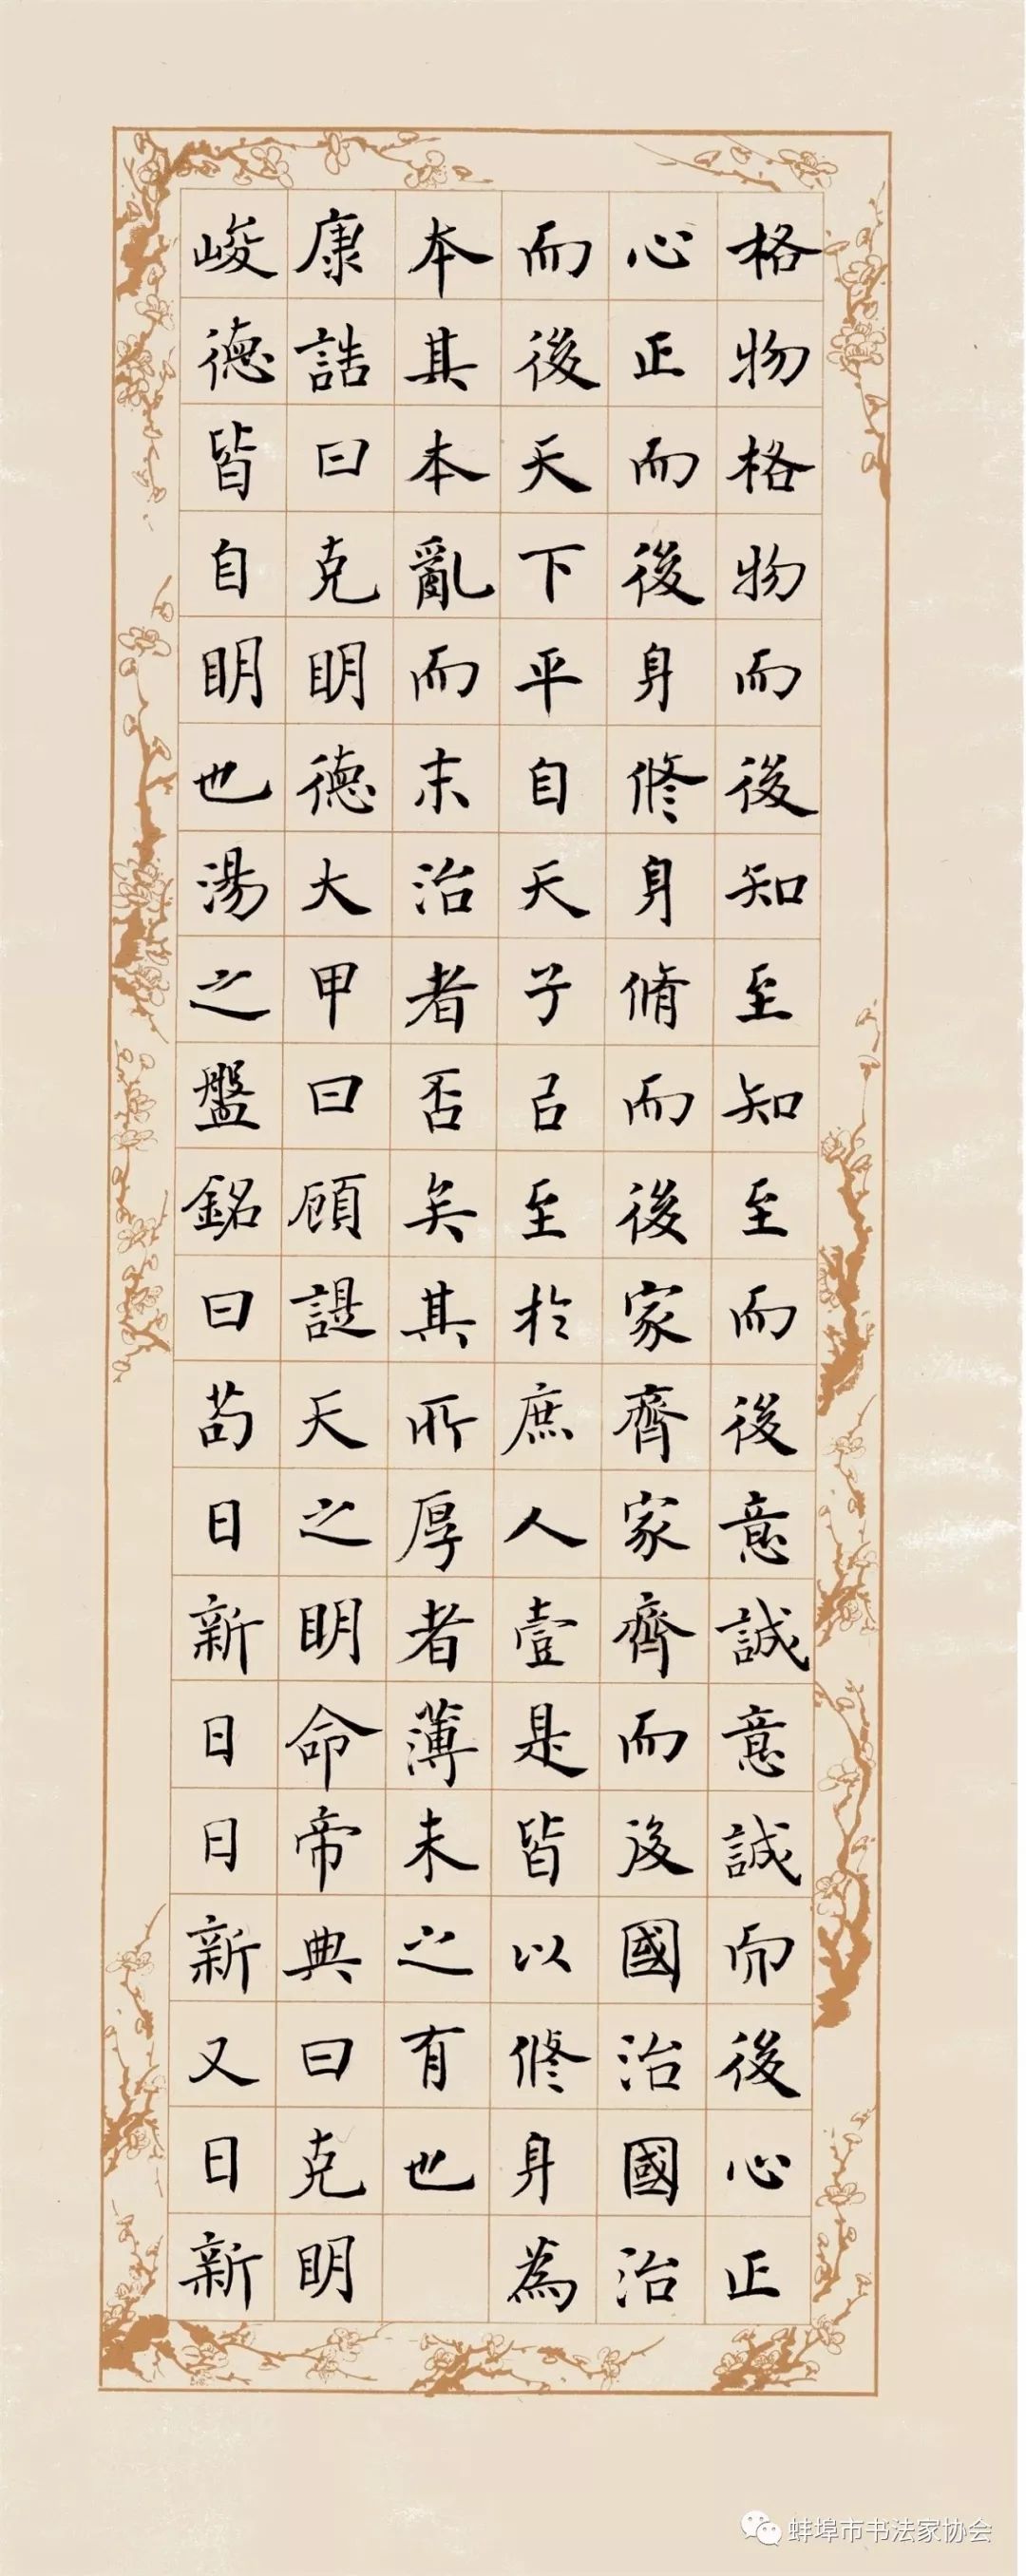 格物格物而後知至知至而後意誠意誠而後心正
心正而後身修身脩而後家齊家齊而後國治國治
而後天下平自天子㠯至於庶人壹是皆以修身為
本其本亂而末治者否矣其所厚者薄未之有也
康誥曰克明德大甲曰顧諟天之明命帝典曰克明
峻德皆自明也湯之盤銘曰苟日新日日新又日新
蚌埠市书法家协会